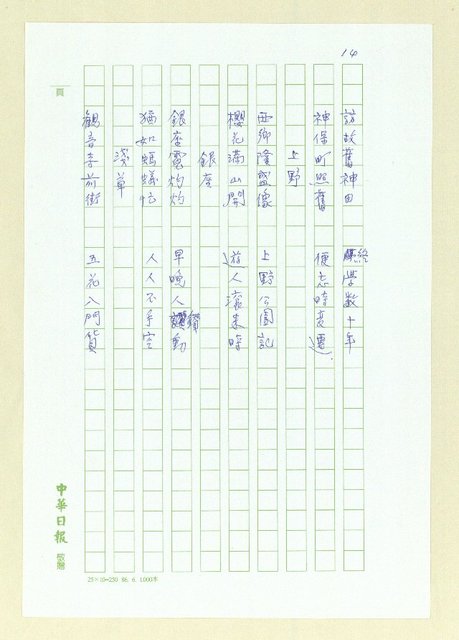 14
訪故舊神田 終學數十年
神保町照舊 便志時支還
上野
西鄉隆盛像 上野公園記
櫻花滿山開 遊人滾来時
銀座
銀座電灼灼 早晚人鑽動
猶如螞蟻忙 人人不手空
淺草
觀音寺前街 五花入門貨
頁
中華日報 敬贈
25×10=250 86.6.1000本